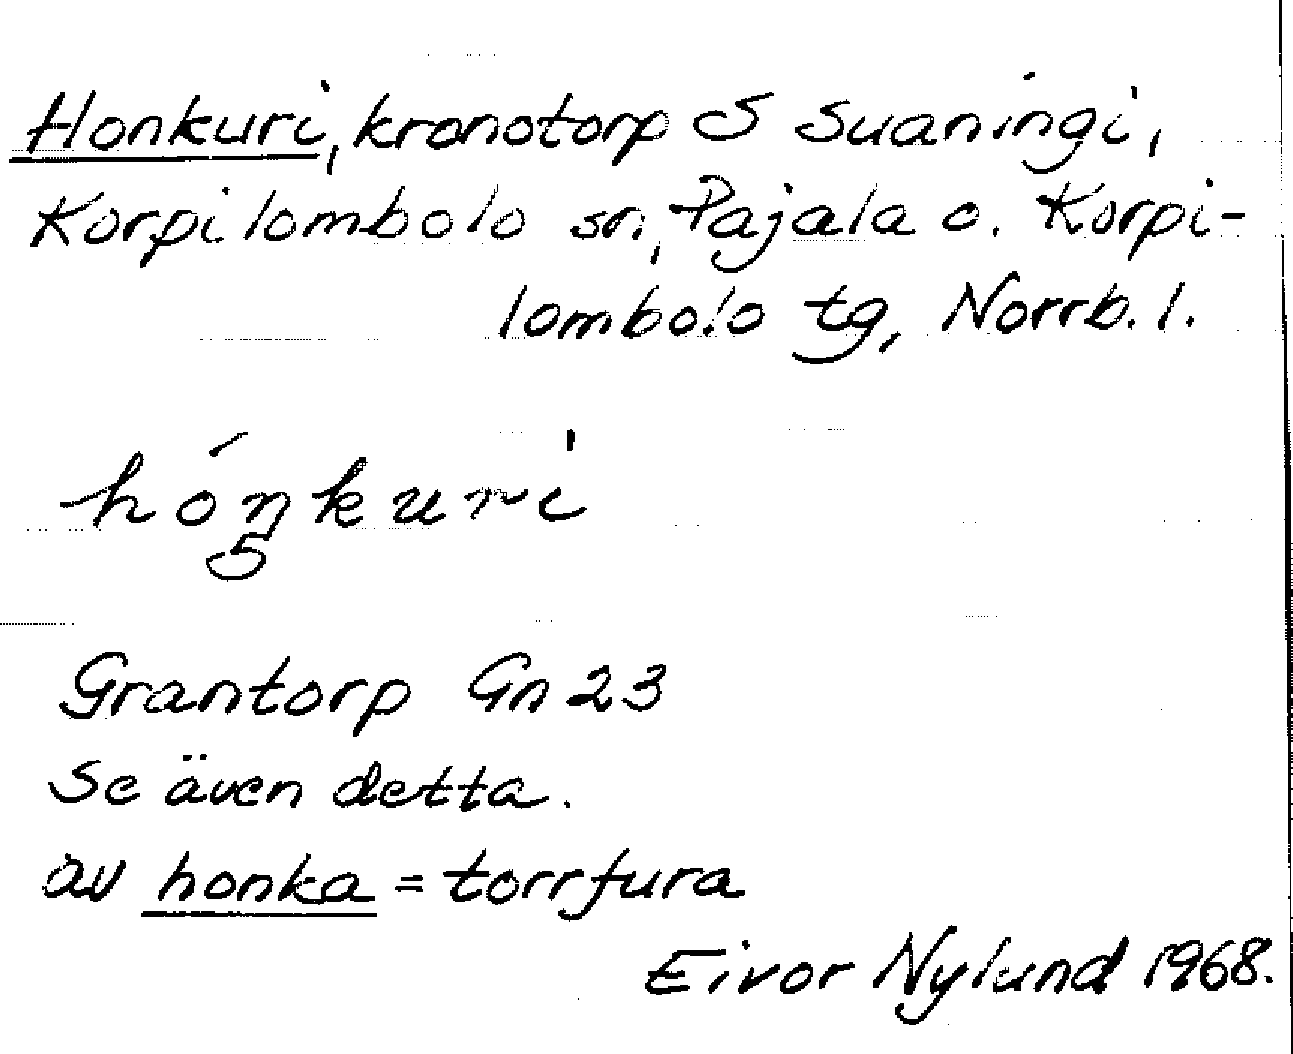 Honkuri, kronotorp S Suaningi,
Korpilombolo sn, Pajala o. Korpi-
lombolo tg, Norrb. l.
hóŋkuri
Grantorp Gn 23
Se även detta.
av honka = torrfura
Eivor Nylund 1968.